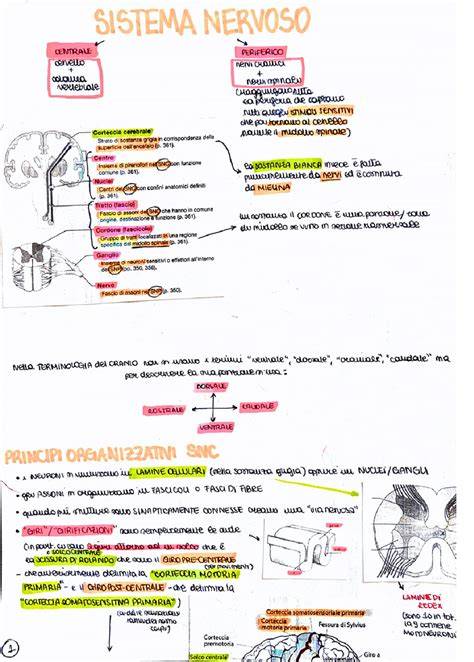 SISTEMA NERVOSO
CENTRALE
cervello
+
colonna
vertebrale
PERIFERICO
nervi cranici
+
nervi spinali
(raggiungono tutta
la periferia che captano
tutti quegli STIMOLI SENSITIVI
che poi tornano al cervello
tramite il midollo spinale)
Corteccia cerebrale
Strato di sostanza grigia in corrispondenza della
superficie dell'encefalo (p. 361).
Centro
Insieme di pirenofori nel SNC con funzione
comune (p. 361).
Nuclei
Centri del SNC con confini anatomici definiti
(p. 361).
Tratto (fascio)
Fascio di assoni del SNC che hanno in comune
origine, destinazione e funzione (p. 361).
Cordone (fascicolo)
Gruppo di tratti localizzati in una regione
specifica del midollo spinale (p. 361).
Ganglio
Insieme di neuroni sensitivi o effettori all'interno
del SNP (pp. 350, 356).
Nervo
Fascio di assoni nel SNP (p. 350).
La SOSTANZA BIANCA invece è fatta
puramente da nervi ed è costituita
da MIELINA
insomma il cordone è una porzione/zona
di midollo se visto in sezione trasversale
nella TERMINOLOGIA del CRANIO non si usano i termini "ventrale", "dorsale", "craniale", "caudale" ma
per descrivere la sua porzione si usa:
DORSALE
ROSTRALE
CAUDALE
VENTRALE
PRINCIPI ORGANIZZATIVI SNC
• i NEURONI si riuniscono in LAMINE CELLULARI (nella sostanza grigia) oppure in NUCLEI/GANGLI
• gli ASSONI si organizzano in FASCICOLI O FASCI DI FIBRE
• quando più strutture sono SINAPTICAMENTE CONNESSE creano una "via nervosa"
• "GIRI"/"CIRIFICAZIONI" sono semplicemente le onde
SOLCO CENTRALE
la SCISSURA DI ROLANDO che sono il GIRO PRE-CENTRALE
(per movimenti)
che anteriormente delimita la "CORTECCIA MOTORIA
PRIMARIA" e il GIRO POST-CENTRALE - che delimita la
"CORTECCIA SOMATOSENSITIVA PRIMARIA")
LAMINE DI
REXED
(sono 10 in tot.
la 9 contiene
MOTONEURONI)
Corteccia somatosensoriale primaria
Corteccia
motoria primaria
Fessura di Sylvius
Corteccia
premotoria
Solco centrale
Giro
1